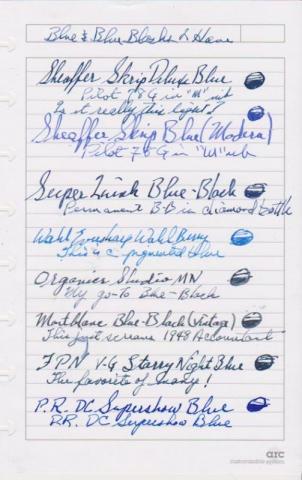 Blue & Blue Blacks I Have
Sheaffer Skrip Deluxe Blue
Pilot 78G in "M" nib
Is it really this light?
Sheaffer Skrip Blue (Modern)
Pilot 78G in "M" nib
Super Quink Blue-Black
Permanent B-B in diamond bottle
Wahl Eversharp Wahl Berry
This is a pigmented blue
Organics Studio MN
My go-to Blue-Black
Montblanc Blue-Black (Vintage)
This just screams 1948 Accountant
FPN V-G Starry Night Blue
The favorite of many!
P.R. DC Supershow Blue
P.R. DC Supershow Blue
arc
customizable system